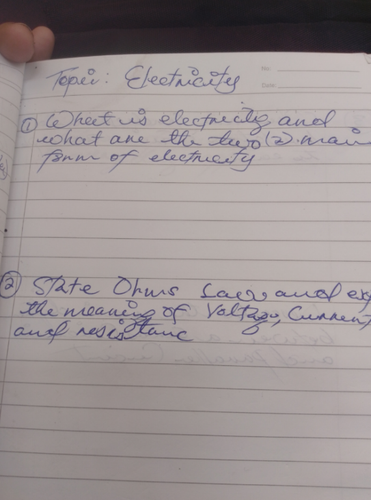 Topic: Electricity
No
Date
① What is electricity and
what are the two (2) main
form of electricity
② State Ohms Law and
the meaning of Voltage, Current,
and resistance